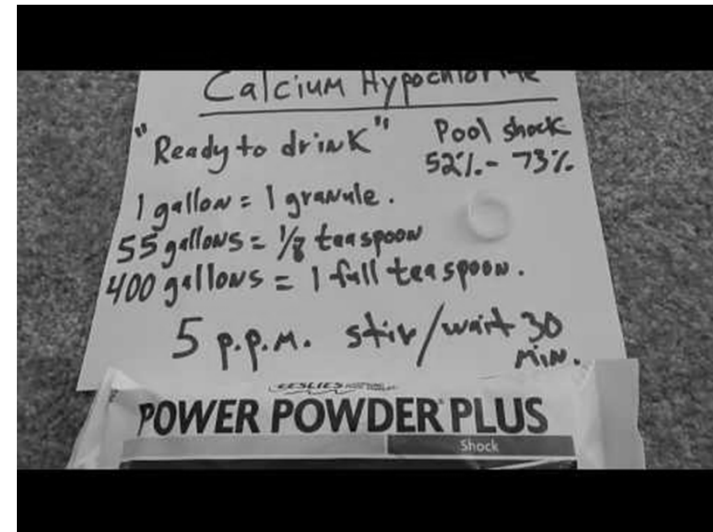 Calcium Hypochlorite
"Ready to drink"
Pool shock
52% - 73%
1 gallon = 1 granule.
55 gallons = 1/8 teaspoon
400 gallons = 1 full teaspoon.
5 p.p.m. stir/wait 30
min.
LESLIE'S
POWER POWDER PLUS
Shock